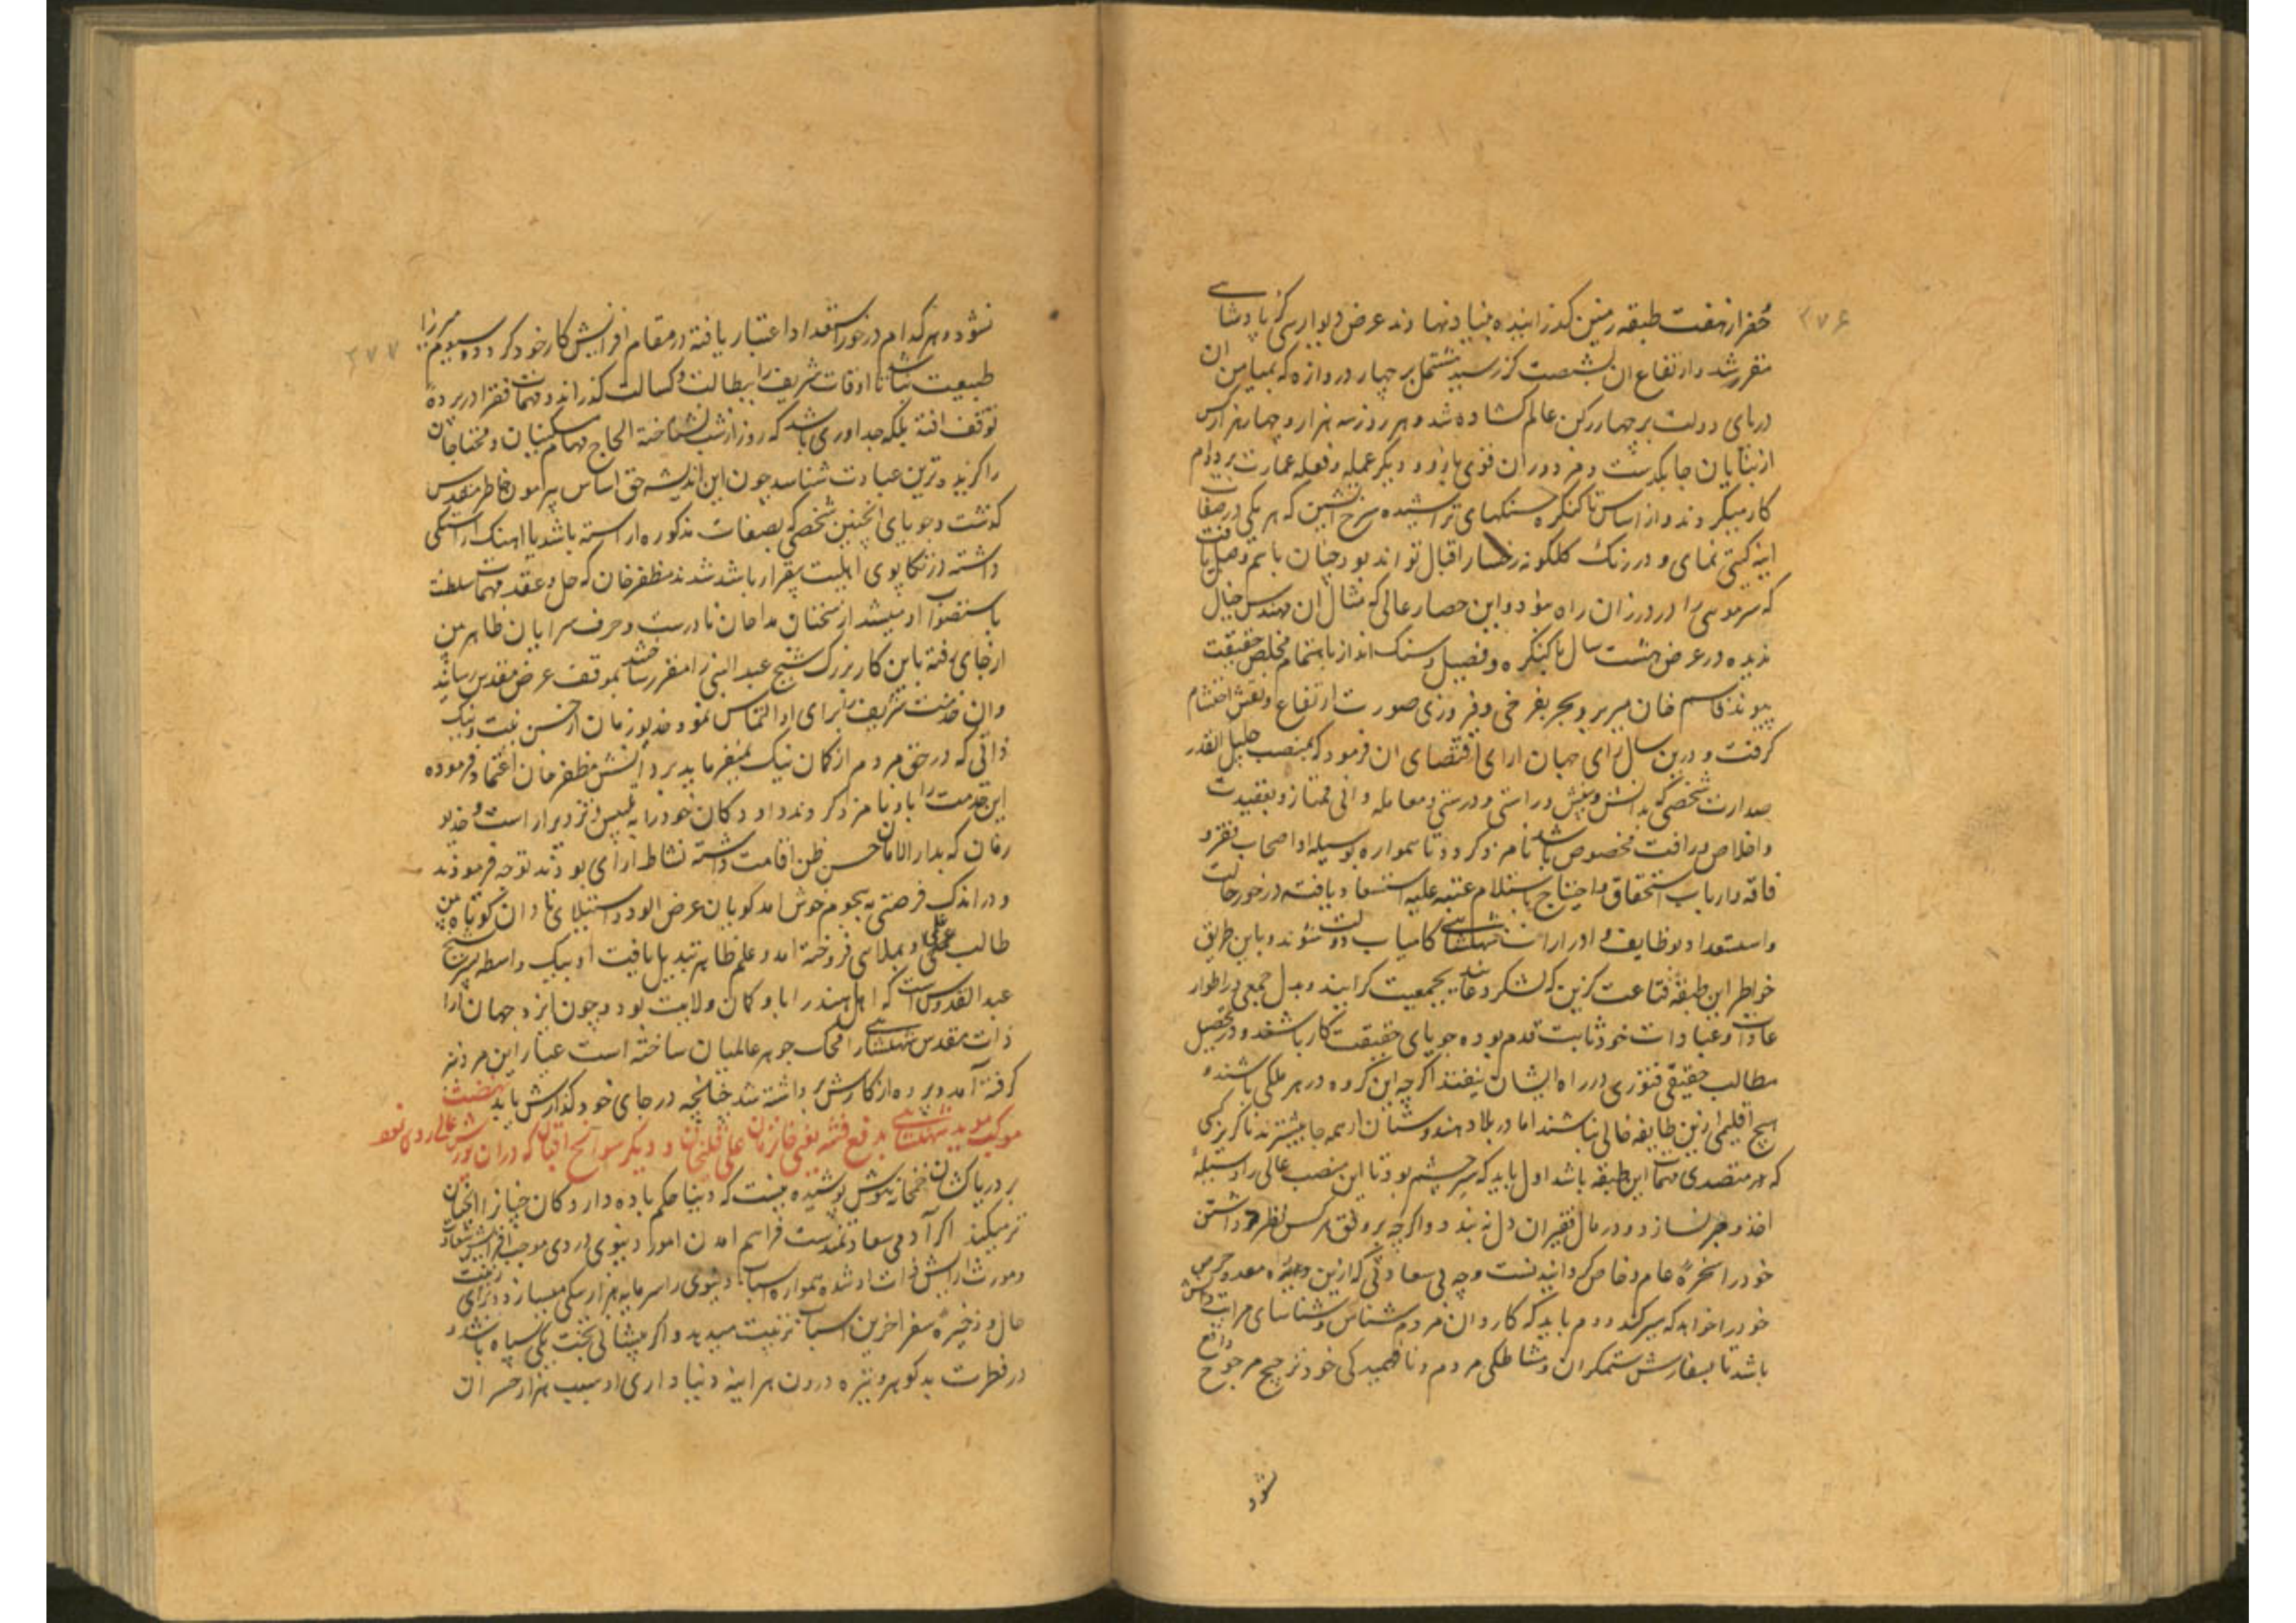 ۳۷۶
حفر از هفت طبقه زمین گذرانیده بنیاد نهادند عرض دیوار سی گز پادشاهی
مقرر شد و ارتفاع ان بشصت گز رسید مشتمل بر چهار دروازه که بمیامن ان
درهای دولت بر چهار رکن عالم کشاده شد و هر روز سه هزار و چهار هزار کس
از بنایان چابکدست و مزدوران قوی بازو و دیگر عمله و فعله عمارت بر دوام
کار میکردند و از اساس تا کنگره سنگهای تراشیده سرخ اتشین که هر یکی در صفا
اینه گیتی نمای و در رنگ گلگونه رخسار اقبال تواند بود چنان باهم وصل یافت
که سر موئی را در درز ان راه نبود و این حصار عالی که مثال ان مهندس خیال
ندیده در عرض هشت سال با کنگره و فصیل و سنگ انداز باهتمام مخلص حقیقت
پیوند قاسم خان میر بر و بحر بفرخی و فیروزی صورت ارتفاع و نقش اختتام
گرفت و درین سال رای جهان ارای اقتضای ان فرمود که بمنصب جلیل القدر
صدارت شخصی که بدانش و بینش و راستی و درستی و معامله دانی ممتاز و بعقیدت
و اخلاص و رافت مخصوص باشد نامزد گردد تا همواره بوسیله او اصحاب فقر و
فاقه و ارباب استحقاق و احتیاج باستلام عتبه علیه استسعاد یافته در خور حالت
و استعداد بوظایف و ادرارات شهنشاهی کامیاب دولت شوند و باین طریق
خواطر این طبقه قناعت گزین که لشکر دعایند بجمعیت گرایند و بدل جمعی در اطوار
عادات و عبادات خود ثابت قدم بوده جویای حقیقت کار باشند و در تحصیل
مطالب حقیقی فتوری در راه ایشان نیفتد اگرچه این گروه در هر ملکی باشند و
هیچ اقلیمی ازین طایفه خالی نباشند اما در بلاد هندوستان از همه جا بیشترند ناگزیر کسی
که متصدی مهمات این طبقه باشد اول باید که سیر چشم بود تا این منصب عالی را وسیله
اخذ و جر نسازد و در مال فقیران دل نه بندد و اگرچه بر وفق هر کس نظر داشتن
خود را سخره عام و خاص گردانیدنست و چه بی سعادتی که ازین وجوه معدود حرص
خود را خواهد که سیر کند دوم باید که کاردان مردم شناس و شناسای مراتب دانش
باشد تا بسفارش ستمگران و مشاطگی مردم و نافهمیدگی خود ترجیح مرجوح واقع
شود
۳۷۷
نشود و هر کدام در خور استعداد اعتبار یافته در مقام افزایش کار خود گردد و سیوم میرزا
طبیعت نباشد تا اوقات شریف را ببطالت و کسالت گذراند و مهمات فقرا در پرده
توقف افتد بلکه جداوری باشد که روز از شب نشناخته انجاح مهام مسکینان و محتاجان
را گزیده ترین عبادت شناسد چون این اندیشه حق اساس پیرامون خاطر مقدس
گذشت و جویای انچنین شخصی که بصفات مذکوره اراسته باشد یا اهنگ راستگی
داشته در تگاپوی اهلیت بیقرار باشد شدند مظفر خان که حل و عقد مهمات سلطنت
باستصواب او میشد از سخنان مداحان نادرست و حرف سرایان ظاهر بین
از جای رفته باین کار بزرگ شیخ عبد النبی را مقرر ساخته بموقف عرض مقدس رسانید
و ان خدمت شریف را برای او التماس نمود خدیو زمان از حسن نیت و نیک
ذاتی که در حق مردم از گمان نیک نمیفرماید بر دانش مظفر خان اعتماد فرموده
این خدمت را باو نامزد کردند و او دکان خود را به تلبیس و تزویر اراست و خدیو
زمان که بدار الامان حسن ظن اقامت داشته نشاط ارای بودند توجه فرمودند
و در اندک فرصتی بهجوم خوش امد گویان غرض الود و استیلای نادان کوتاه بین
طالب علمی و بملایی فروخته امد و علم ظاهر تبدیل یافت او بیک واسطه پسر شیخ
عبد القدوس است که اهل هند را باو گمان ولایت بود و چون ایزد جهان ارا
ذات مقدس شهنشاهی را محک جوهر عالمیان ساخته است عیار این مرد نیز
گرفته آمد و پرده از کارش برداشته شد چنانچه در جای خود گذارش یابد نهضت
موکب موید شهنشاهی بدفع فتنه بغی خانزمان علی قلیخان و دیگر سوانح اقبال که دران یورش عالی رو نمود
بر دریاکشان خمخانه هوش پوشیده نیست که دنیا حکم باده دارد کان چنان را انچنان
تر میکند اگر آدمی سعادتمندست فراهم امدن امور دنیوی در وی موجب افزایش سعادت
و مورث ارایش ذات او شده همواره اسباب دنیوی را سرمایه هزار نیکی میسازد و برای زینت
حال و ذخیره سفر اخرین اسباب ترتیب میدهد و اگر پیشانی بخت یکی سیاه باشد و
در فطرت بد گوهر و تیره درون هر اینه دنیا داری او سبب هزار خسران